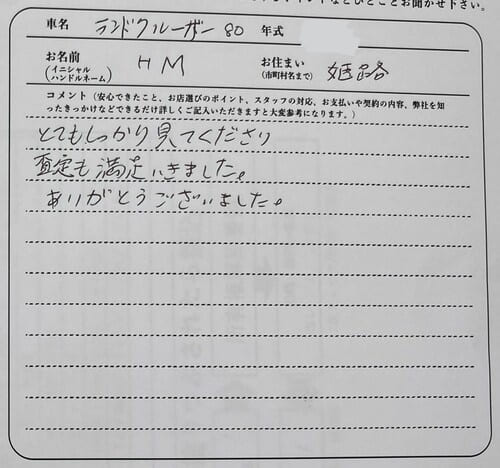 などひとことお聞かせ下さい。
車名 ランドクルーザー 80 年式
お名前 (イニシャル ハンドルネーム) HM お住まい (市町村名まで) 姫路
コメント（安心できたこと、お店選びのポイント、スタッフの対応、お支払いや契約の内容、弊社を知
ったきっかけなどできるだけ詳しくご記入いただきますと大変参考になります。）
とてもしっかり見てくださり
査定も満足いきました。
ありがとうございました。